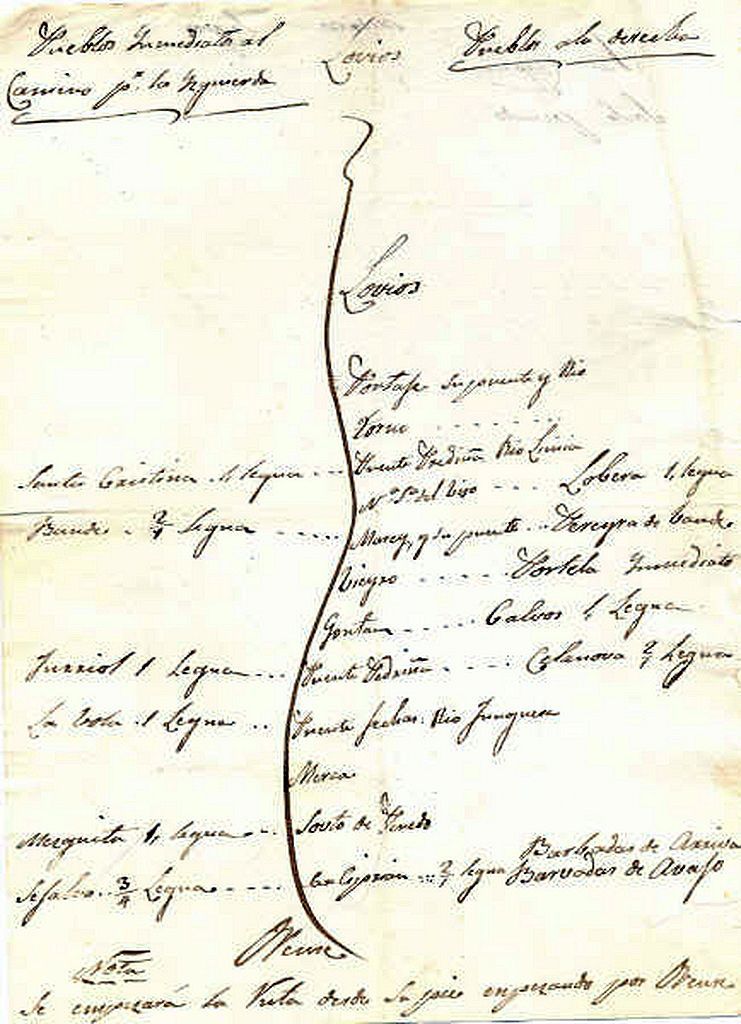 Pueblos Inmediatos al
Camino pr. la Izquierda
Lovios
Pueblos ala derecha
Lovios
Portaje su puente y Rio
Torno
Santa Cristina 1 legua Puente Pedriña Rio Limia
Na Sa del Viso Lobera 1, legua
Bande 2/4 Legua Marey, y su puente Pereyra de Bande
Vieyro Portela Inmediato
Gontan Calvos 1, Legua
Junriol 1 Legua Puente Pedriña Celanova 2/4 Legua
La Bola 1 Legua Puente fechas Rio Junguera
Merca
Mezquita 1, legua Souto de Penedo
Sejalvo 3/4 Legua Sn Ciprian 2/4 legua Barbadas de Arriva
Barvadas de Avajo
Orense
Nota
Se empezará la Ruta desde su pie empezando por Orense